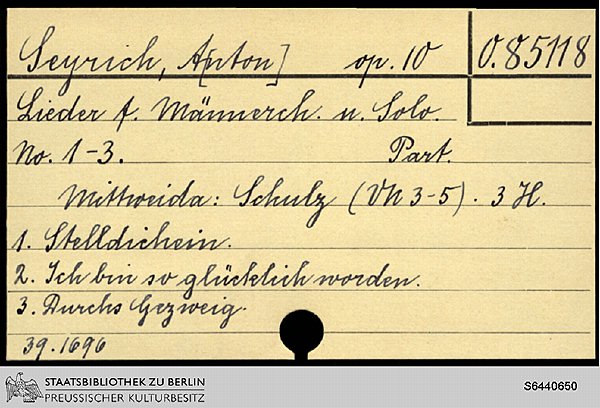 Seyrich, A[nton] op. 10 O.85118
Lieder f. Männerch. u. Solo.
No. 1-3. Part.
Mittweida: Schulz (VN 3-5). 3 H.
1. Stelldichein.
2. Ich bin so glücklich worden.
3. Durchs Gezweig.
39.1696
STAATSBIBLIOTHEK ZU BERLIN
PREUSSISCHER KULTURBESITZ
S6440650